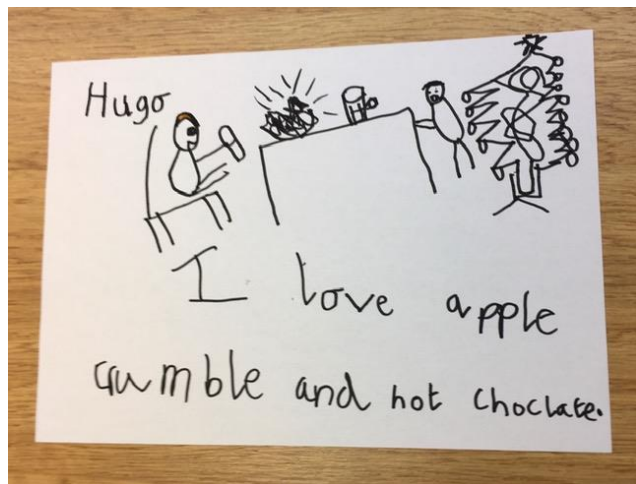 Hugo
I love apple
crumble and hot choclate.